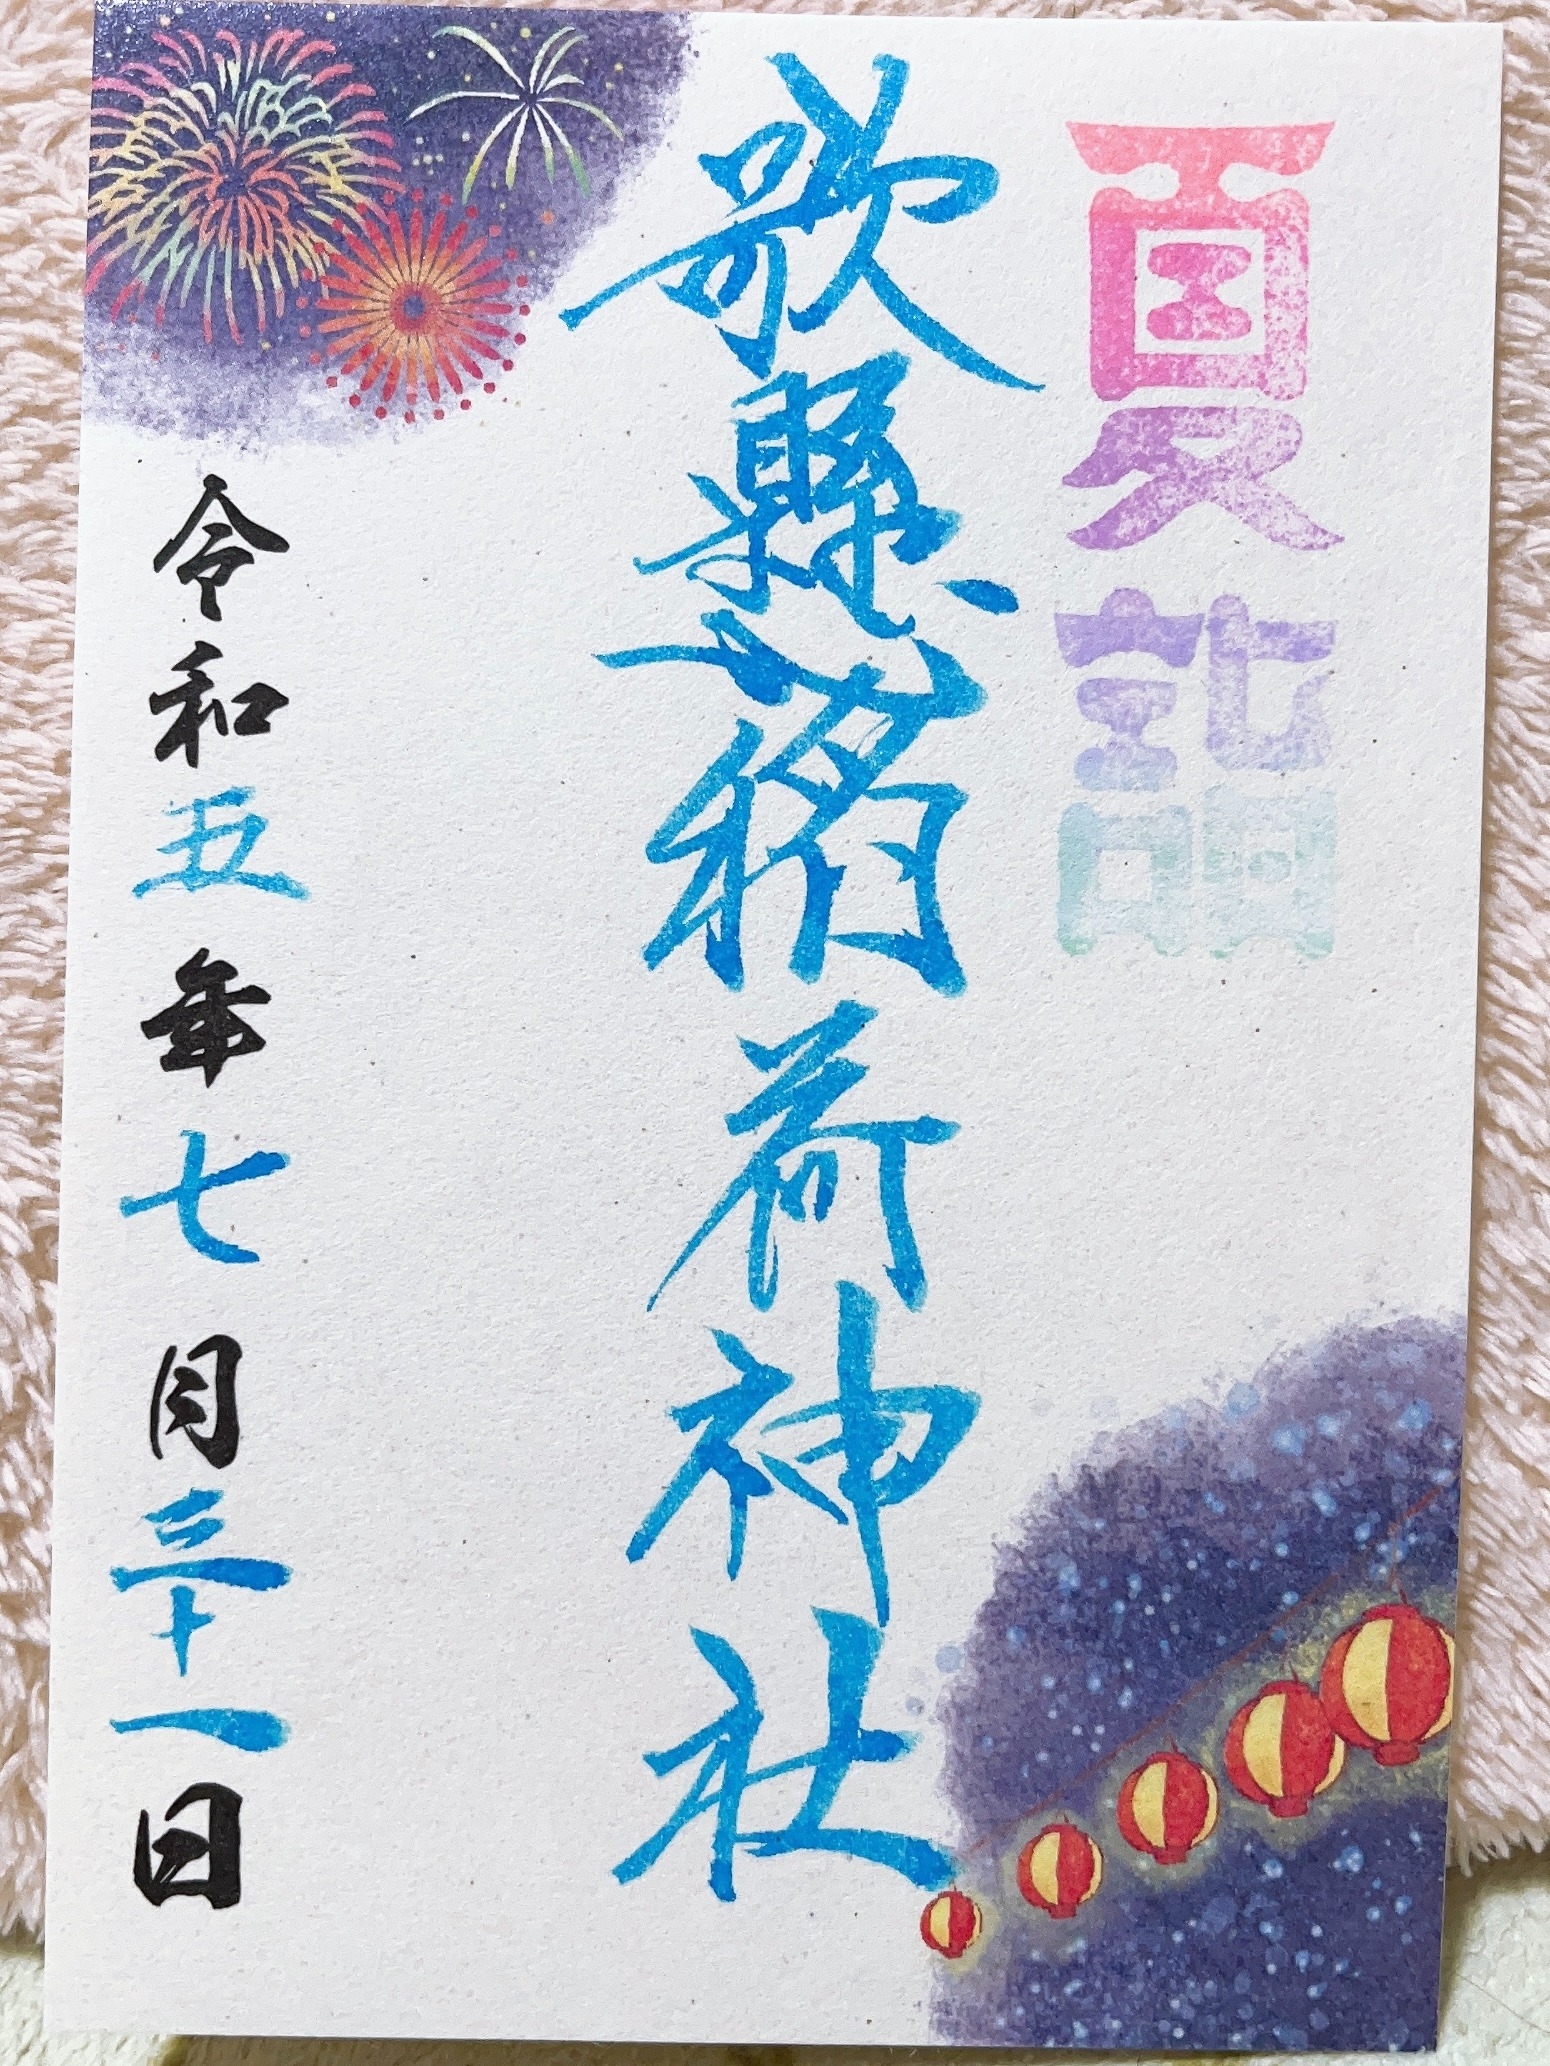 夏詣
歌懸稲荷神社
令和五年七月三十一日